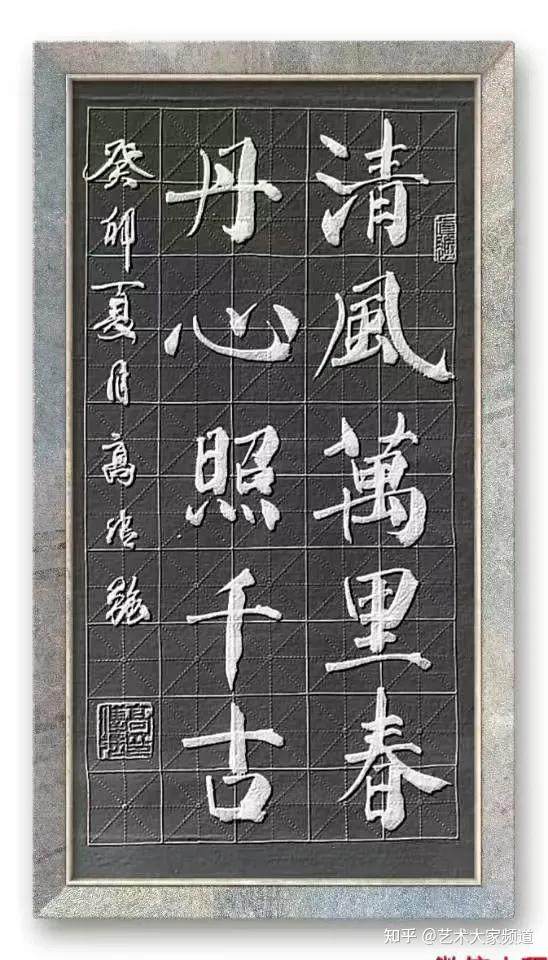 清風萬里春
丹心照千古
癸卯夏月高
知乎 @艺术大家频道